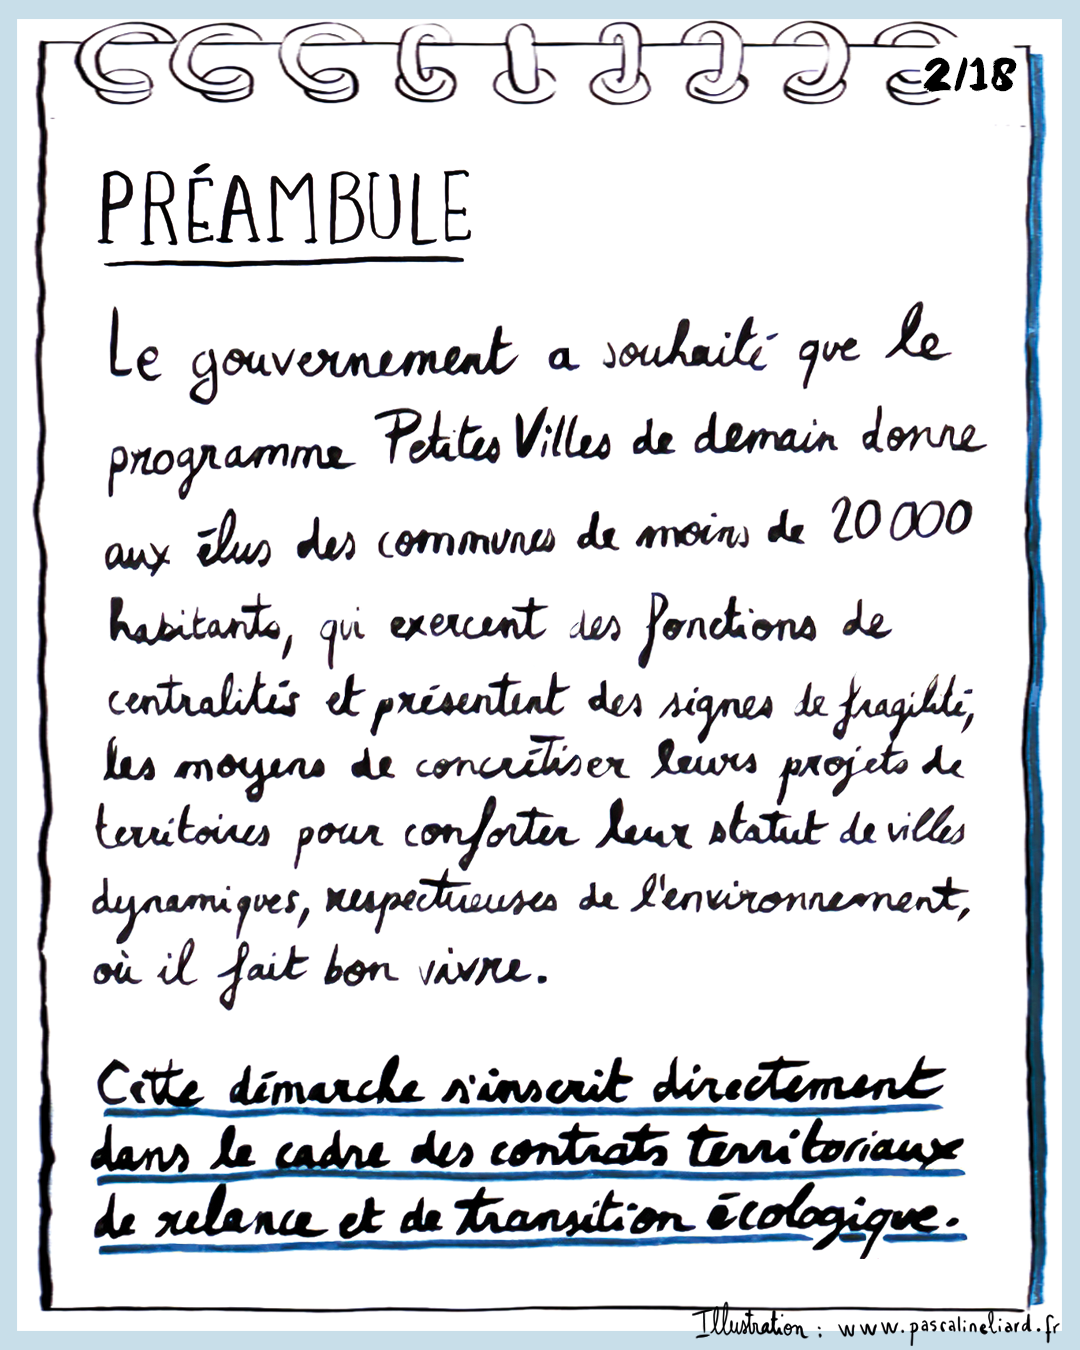 2/18
PRÉAMBULE
Le gouvernement a souhaité que le
programme Petites Villes de demain donne
aux élus des communes de moins de 20 000
habitants, qui exercent des fonctions de
centralités et présentent des signes de fragilité,
les moyens de concrétiser leurs projets de
territoires pour conforter leur statut de villes
dynamiques, respectueuses de l'environnement,
où il fait bon vivre.
Cette démarche s'inscrit directement
dans le cadre des contrats territoriaux
de relance et de transition écologique.
Illustration : www.pascalineliard.fr